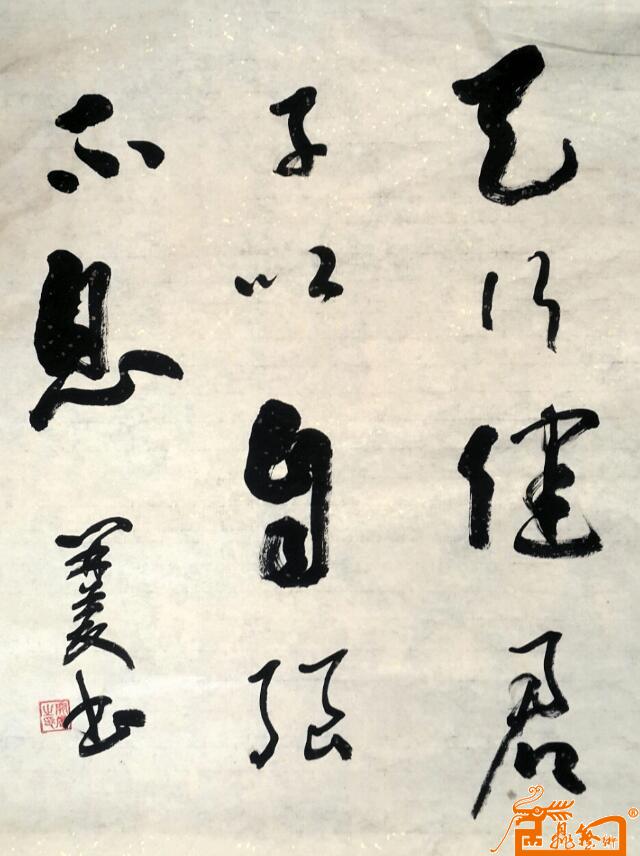 天行健君
子以自强
不息
书